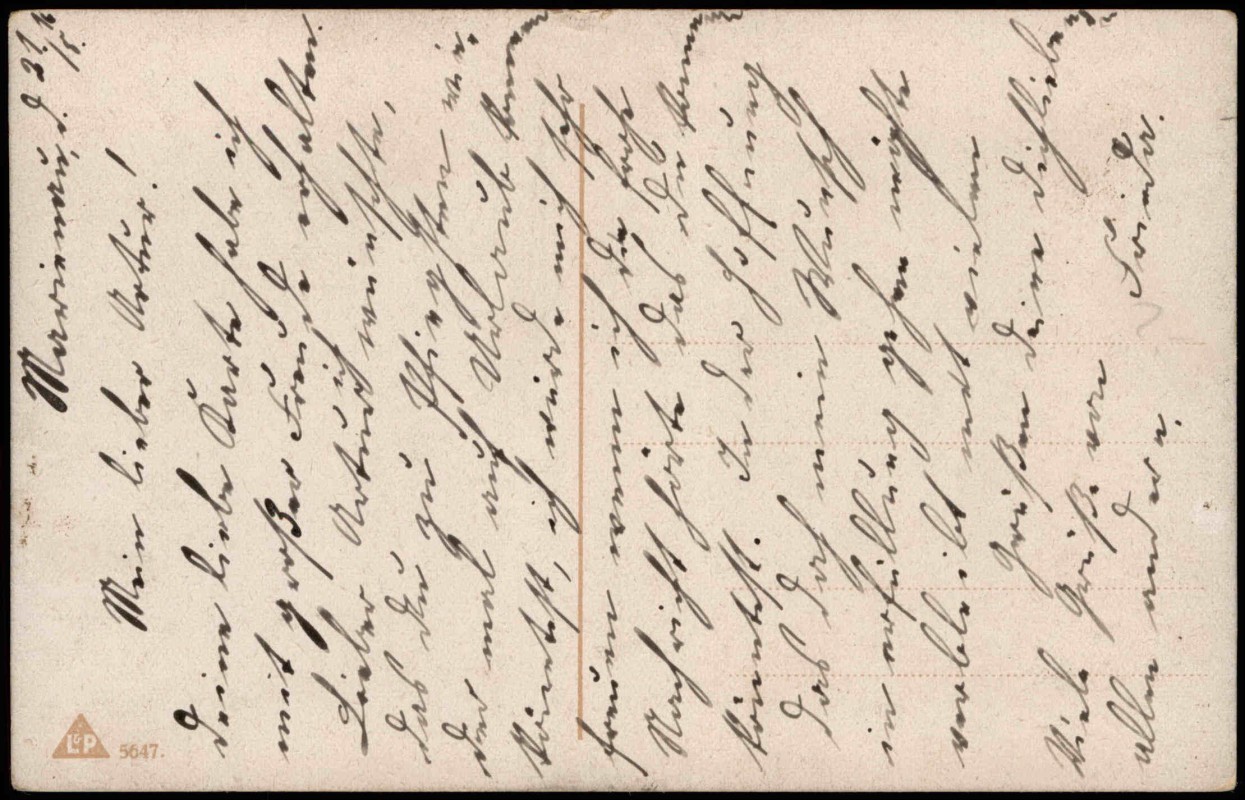 Marienau, d. 31.
Mein lieber Artur!
Deine liebe Karte habe ich
mit großer Freude erhalten.
Lieber Artur ich wünschte,
das du zu Pfingsten wie
der mal auf Urlaub kommen
könntest, ich würde mich sehr
freuen wenn ich die frohe
Nachricht hörte das du kommen
könntest. In der Hoffnung
das doch mein Wunsch
in erfüllung gehen möchte
verbleibt mit vielen
Grüßen deine dich liebende
Viele Grüße von Frieda.
allen andern.
L&P 5647.